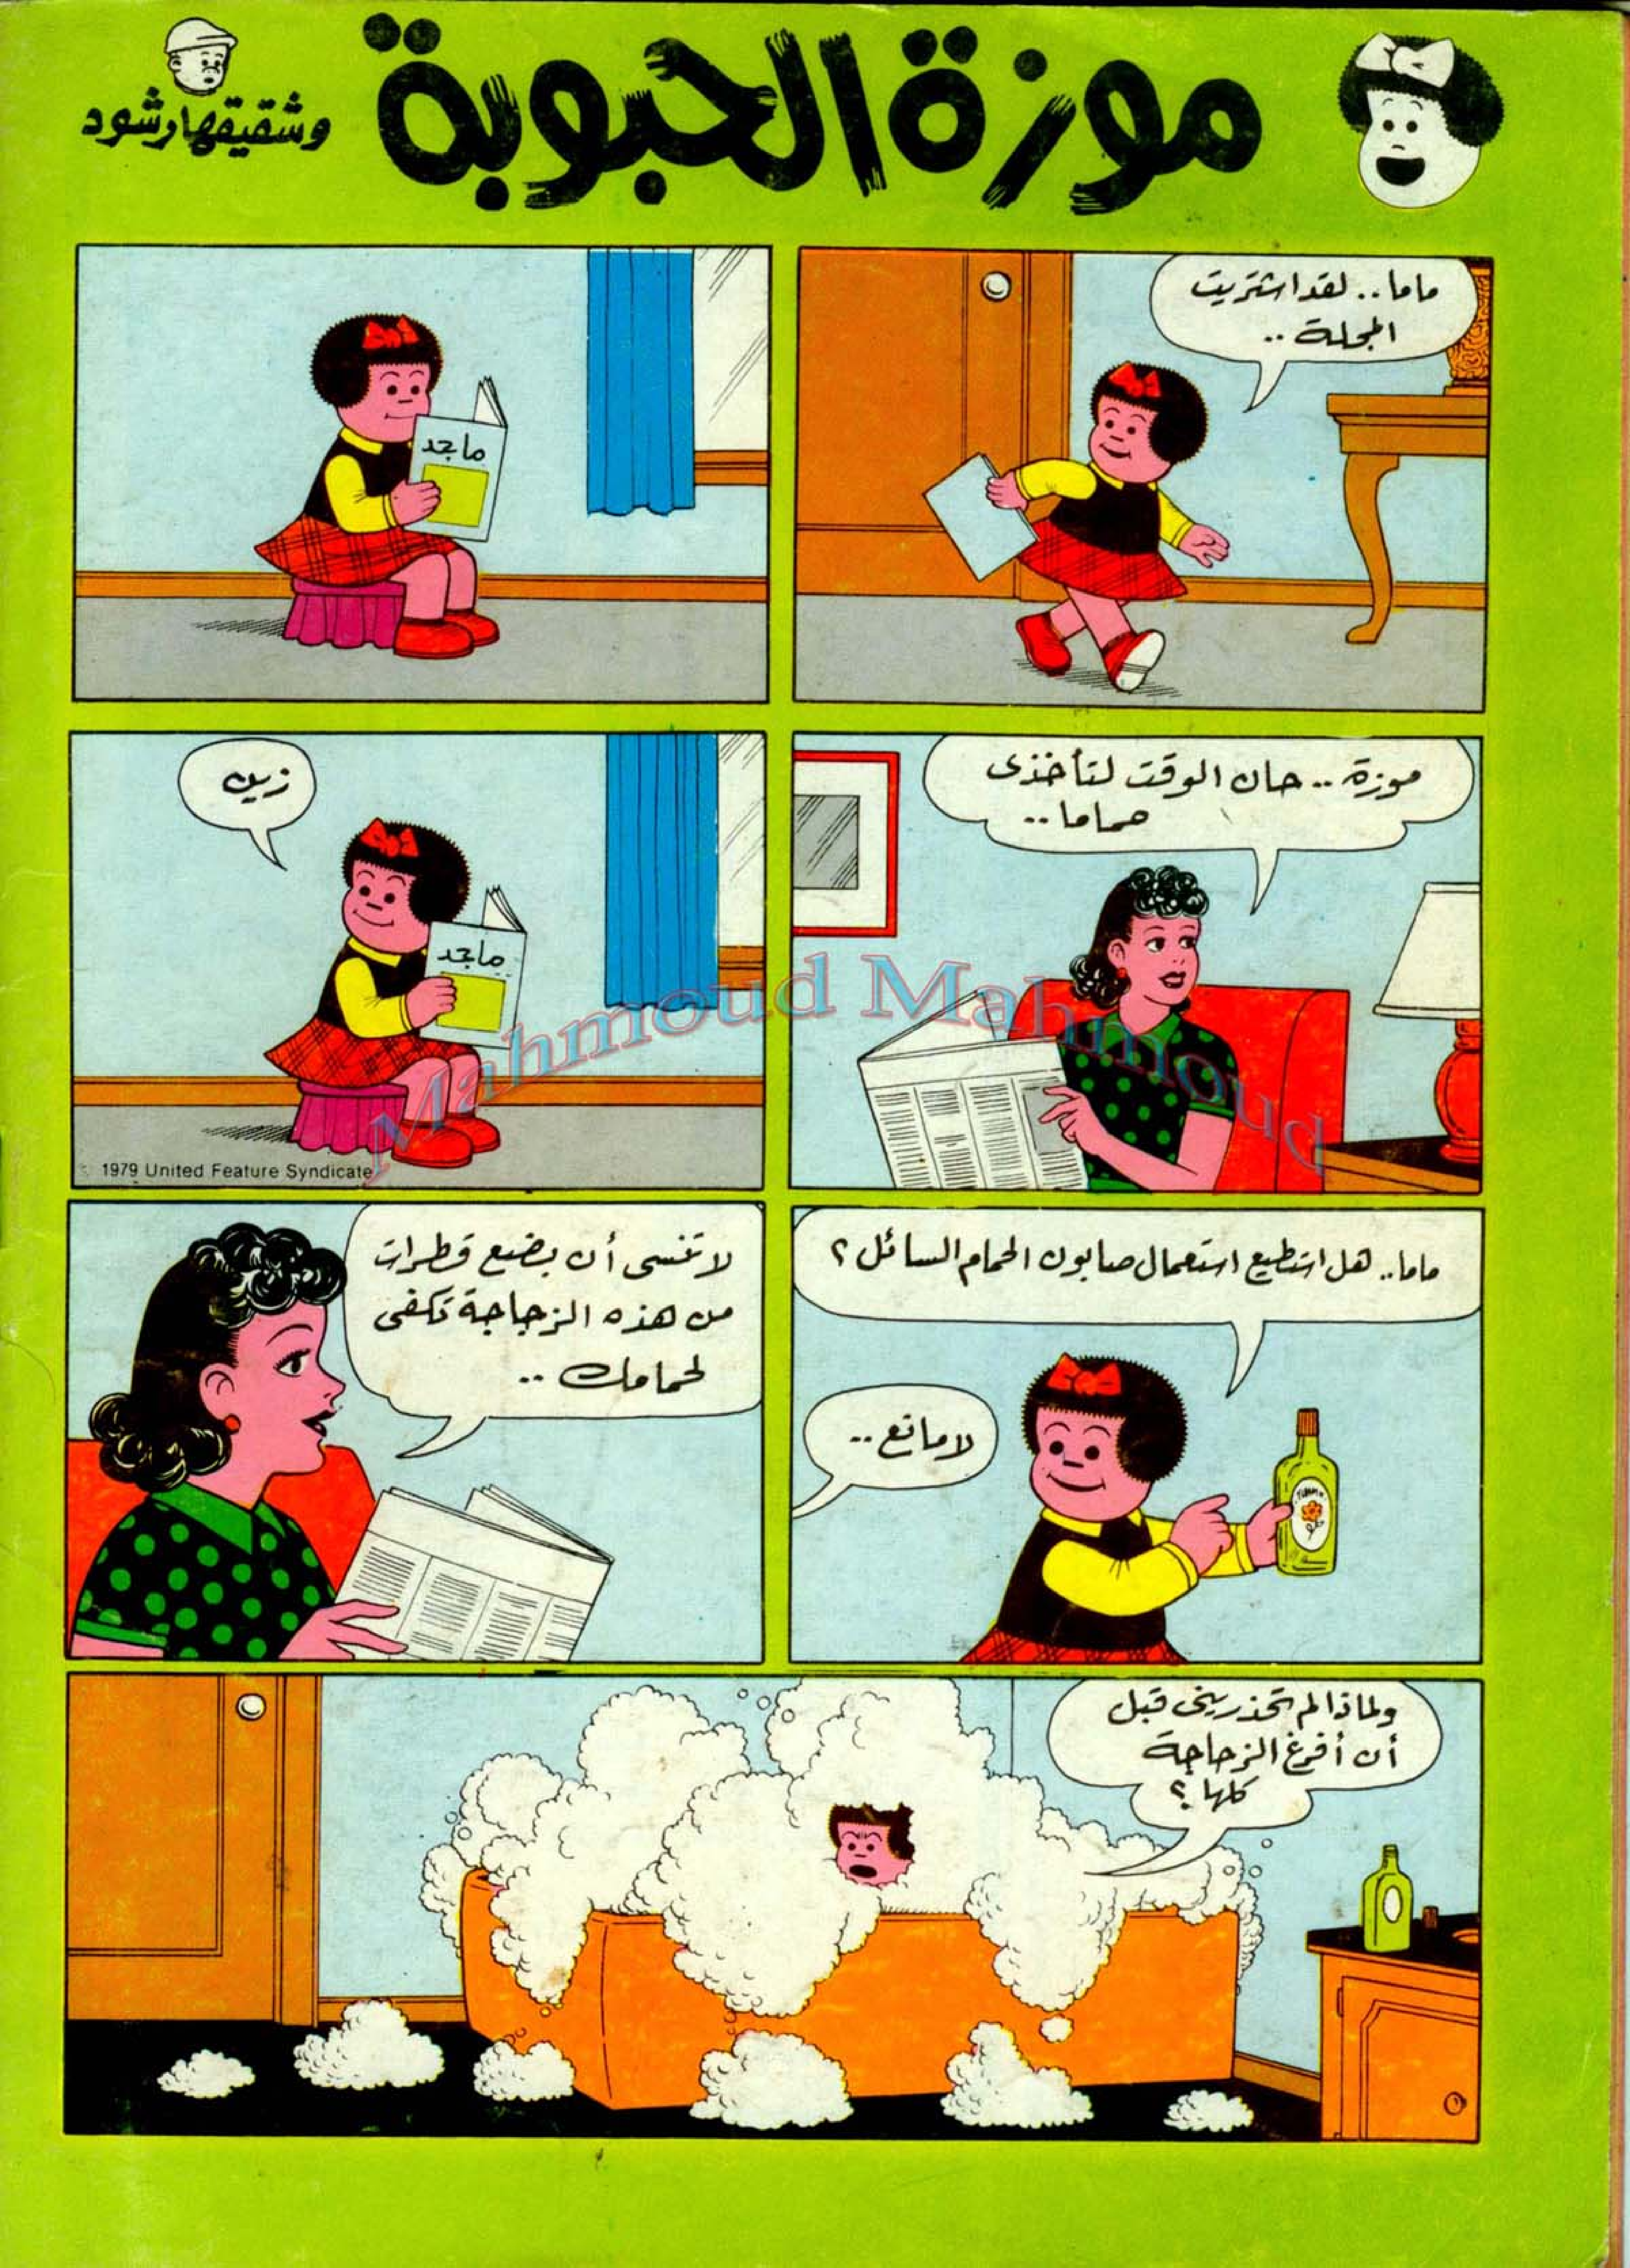 موزة الحبوبة
وشقيقها رشود
ماما.. لقد اشتريت
المجلة ..
ماجد
موزة .. حان الوقت لتأخذى
حماما ..
زين
ماجد
1979 United Feature Syndicate
ماما.. هل استطيع استعمال صابون الحمام السائل ؟
لا مانع ..
لا تنسى أن بضع قطرات
من هذه الزجاجة تكفى
لحمامك ..
ولماذا لم تحذرينى قبل
أن أفرغ الزجاجة
كلها ؟
Mahmoud Mahmoud